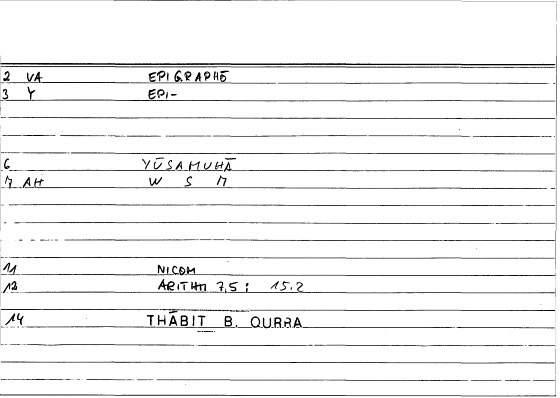 2 VA EPIGRAPHĒ
3 Y EPI-
6 YŪSAMUHĀ
7 AH W S M
11 NICOM
12 ARITHM 7,5; 15.2
14 THĀBIT B. QURRA